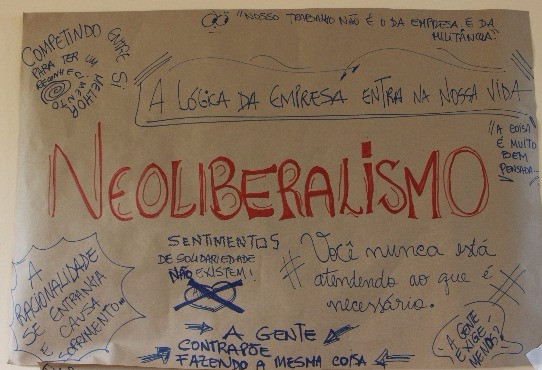 👀 "NOSSO TRABALHO NÃO É O DA EMPRESA. É DA
MILITÂNCIA."
COMPETINDO ENTRE SI
PARA TER UM
MELHOR
RECONHECIMENTO
A LÓGICA DA EMPRESA ENTRA NA NOSSA VIDA
"A COISA
É MUITO
BEM
PENSADA...
NEOLIBERALISMO
SENTIMENTOS
DE SOLIDARIEDADE
NÃO EXISTEM!
# Você nunca está
atendendo ao que é
necessário. #
A
RACIONALIDADE
SE ENTRANHA
E CAUSA
SOFRIMENTO...
A GENTE
CONTRAPÕE
FAZENDO A MESMA COISA
A GENTE
EXIGE
MENOS?